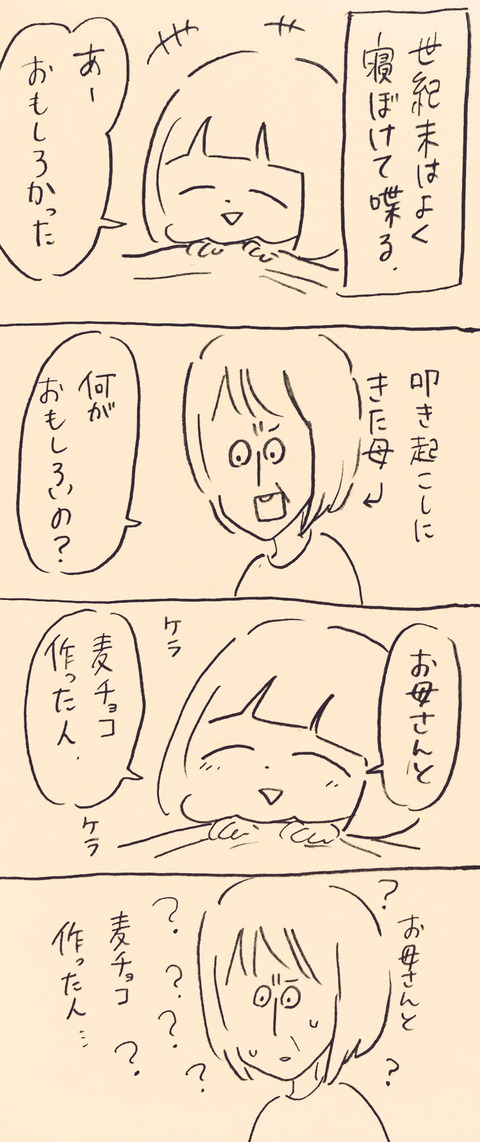 世紀末はよく
寝ぼけて喋る.
あー
おもしろかった
叩き起こしに
きた母
何が
おもしろいの？
お母さんと
麦チョコ
作った人.
ケラ
ケラ
お母さんと
麦チョコ
作った人…
？
？
？
？
？
？
？